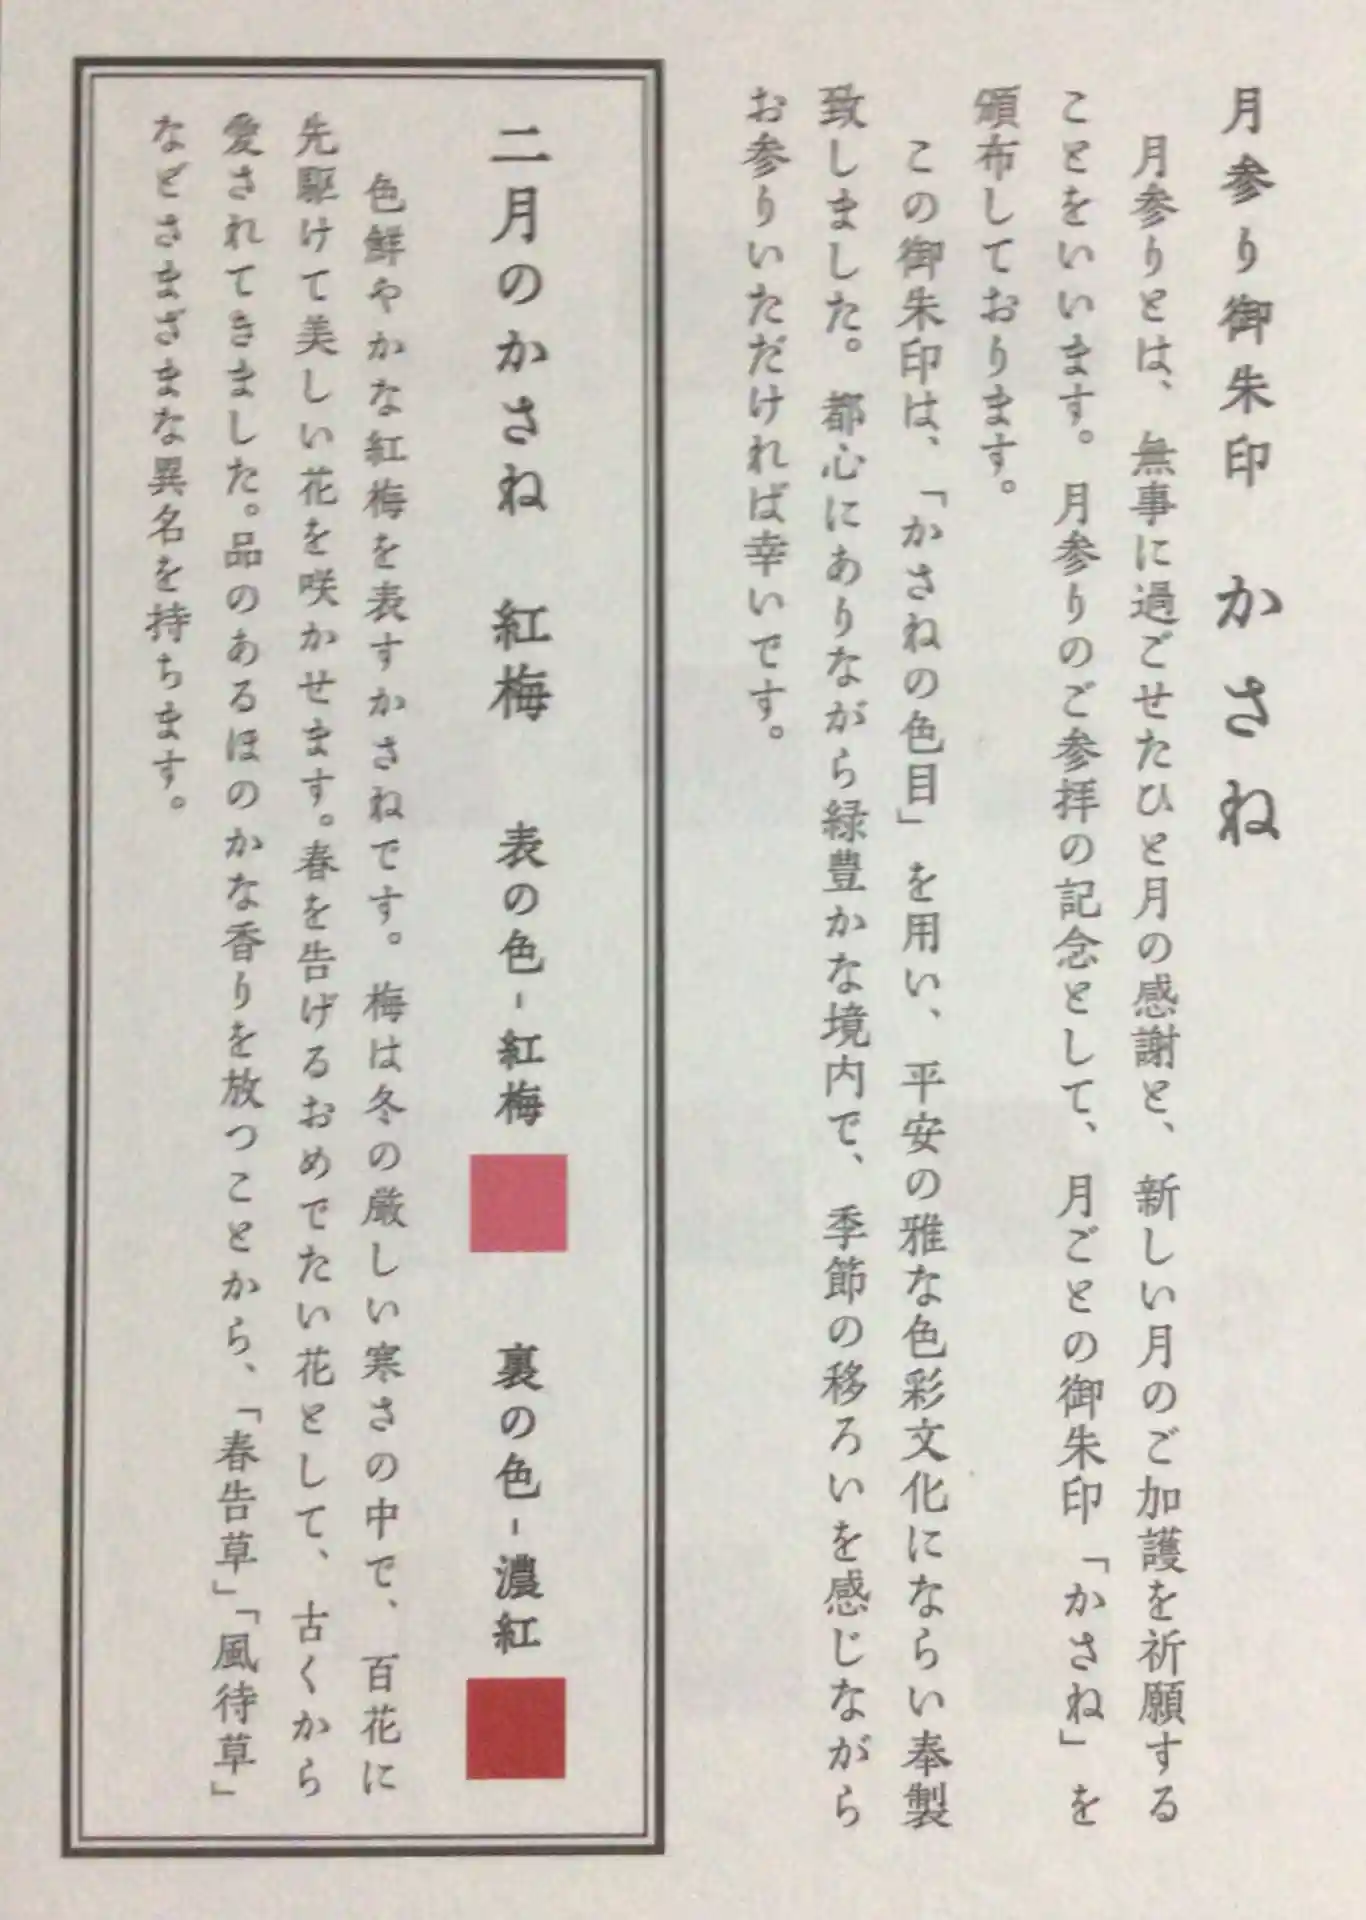 月参り御朱印　かさね
月参りとは、無事に過ごせたひと月の感謝と、新しい月のご加護を祈願する
ことをいいます。月参りのご参拝の記念として、月ごとの御朱印「かさね」を
頒布しております。
この御朱印は、「かさねの色目」を用い、平安の雅な色彩文化にならい奉製
致しました。都心にありながら緑豊かな境内で、季節の移ろいを感じながら
お参りいただければ幸いです。
二月のかさね　紅梅　表の色-紅梅　裏の色-濃紅
色鮮やかな紅梅を表すかさねです。梅は冬の厳しい寒さの中で、百花に
先駆けて美しい花を咲かせます。春を告げるおめでたい花として、古くから
愛されてきました。品のあるほのかな香りを放つことから、「春告草」「風待草」
などさまざまな異名を持ちます。